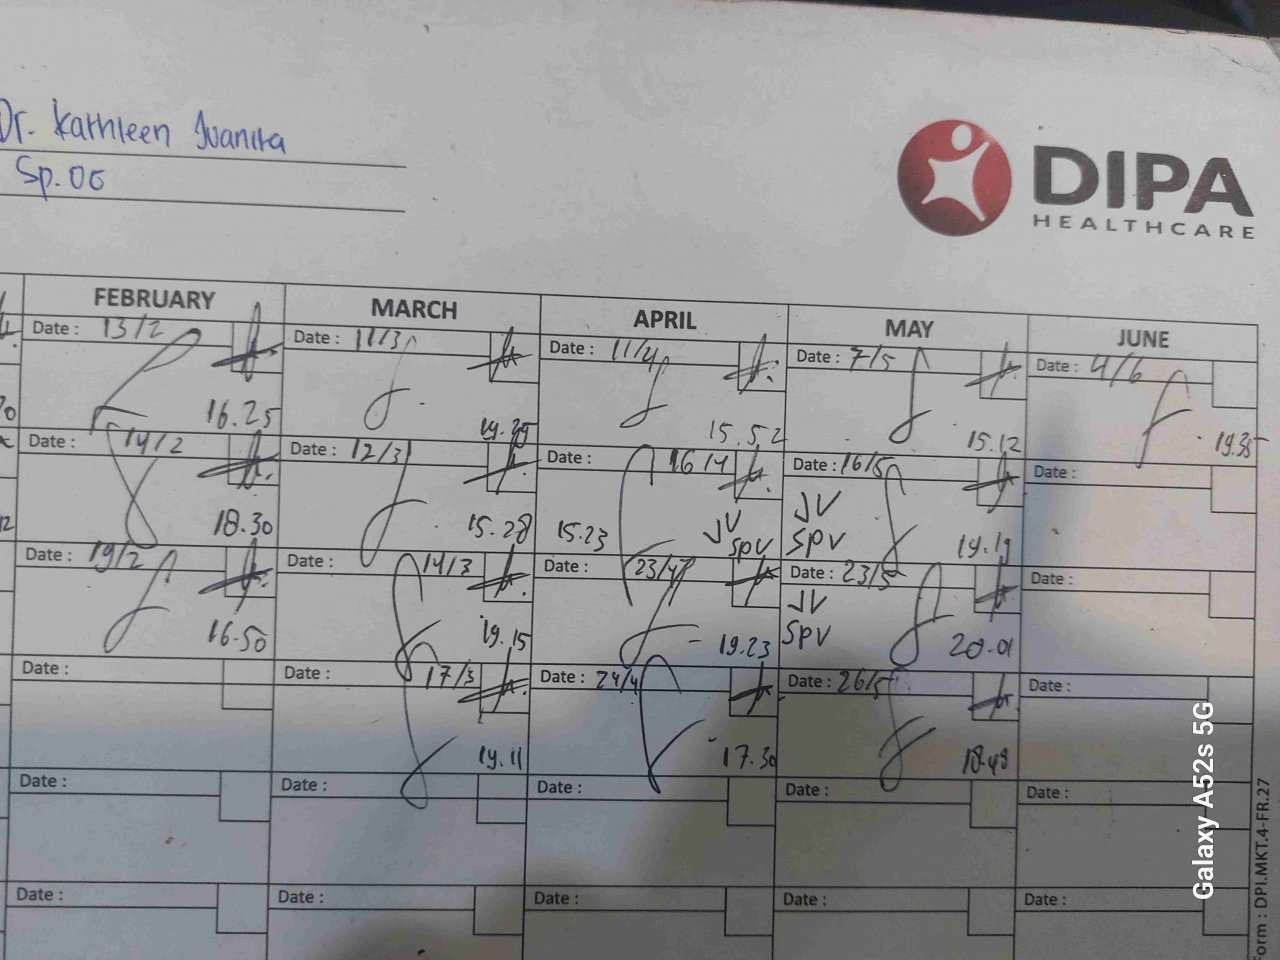 Dr. Kathleen Juanita
Sp.OG
DIPA
HEALTHCARE
FEBRUARY MARCH APRIL MAY JUNE
Date : 13/2 Date : 11/3 Date : 11/4 Date : 7/5 Date : 4/6
16.25 15.52 15.12 19.35
Date : 14/2 Date : 12/3 Date : 16/4 Date : 16/5 Date :
18.30 15.28 15.23 JV SPV JV SPV 19.19
Date : 19/2 Date : 14/3 Date : 23/4 Date : 23/5 Date :
16.50 19.15 19.23 JV SPV 20.01
Date : Date : 17/3 Date : 24/4 Date : 26/5 Date :
19.11 17.30 18.49
Date : Date : Date : Date : Date :
Date : Date : Date : Date : Date :
Form : DPI.MKT.4-FR.27
Galaxy A52s 5G